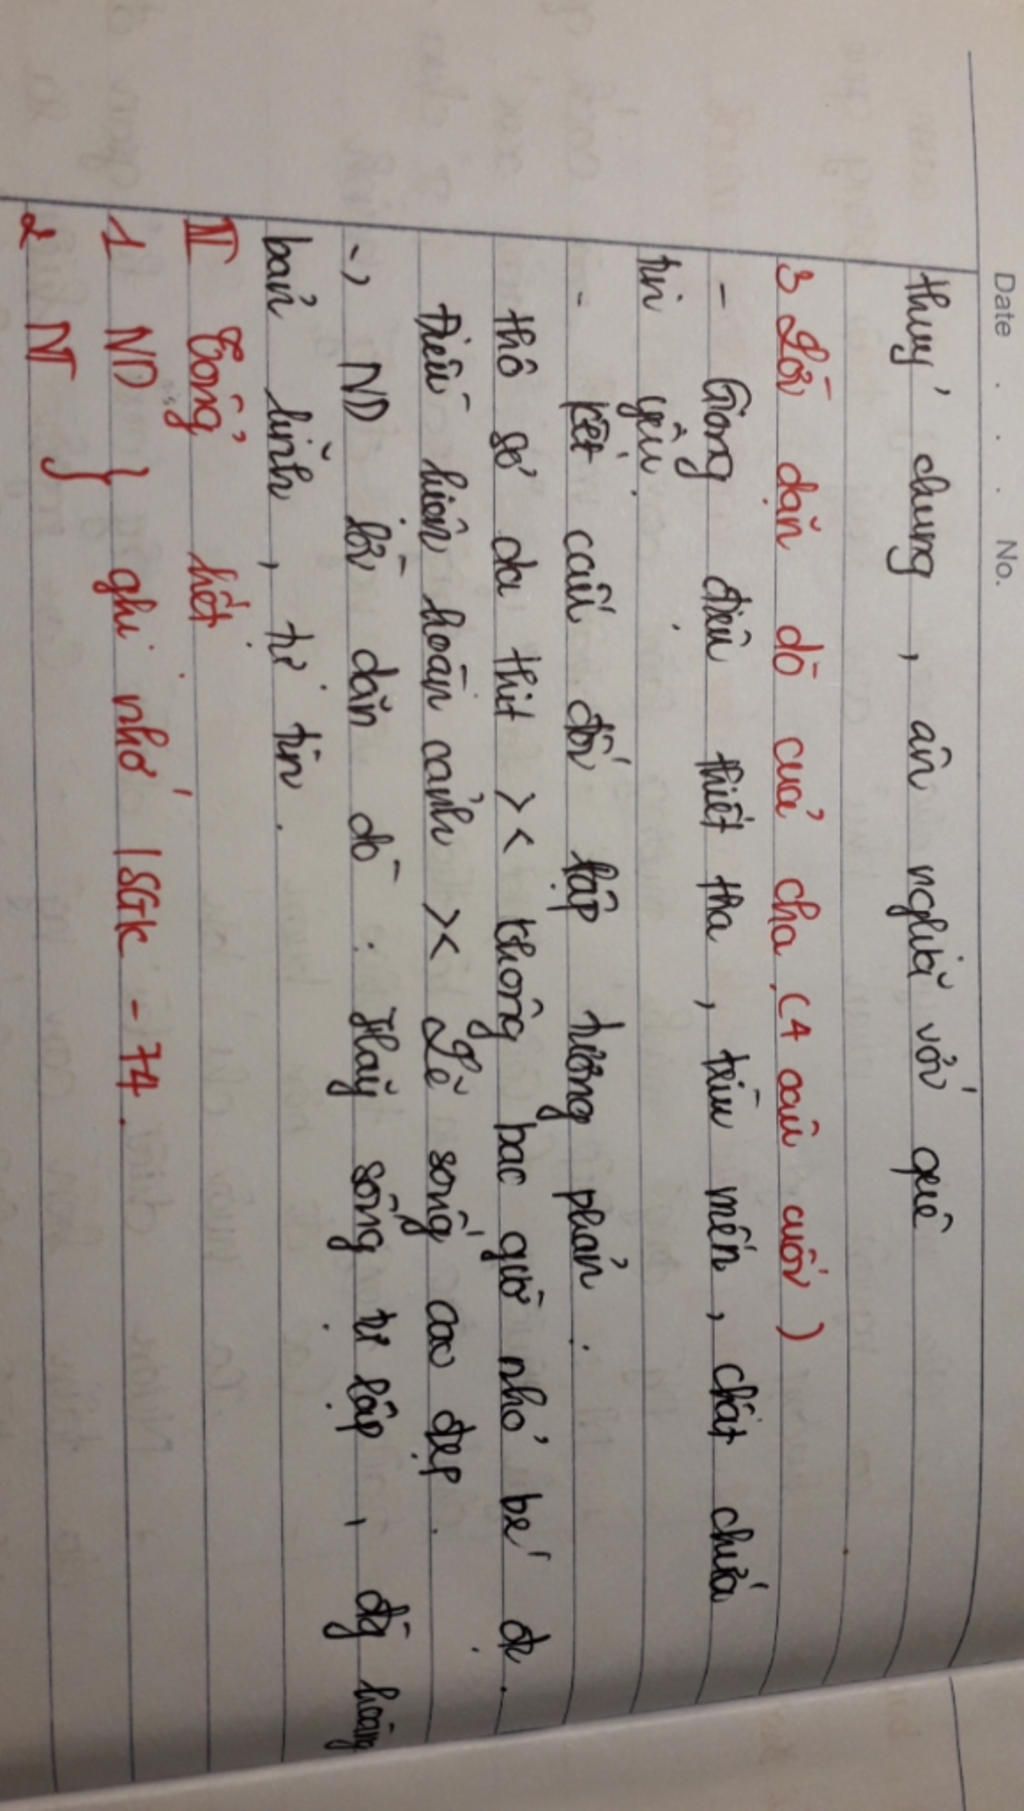 Date . . . No.
thuỷ chung, ân nghĩa với quê
3 Lời dặn dò của cha (4 câu cuối)
- Giọng điệu thiết tha, trìu mến, chất chứa
tin yêu.
- kết cấu đối lập tương phản.
thô sơ da thịt >< không bao giờ nhỏ bé đc.
Điều kiện hoàn cảnh >< Lẽ sống cao đẹp.
-> ND lời dặn dò: Hãy sống tự lập, đg hoàng
bản lĩnh, tự tin.
III Tổng kết
1 ND } ghi nhớ / SGK - 74.
2 NT